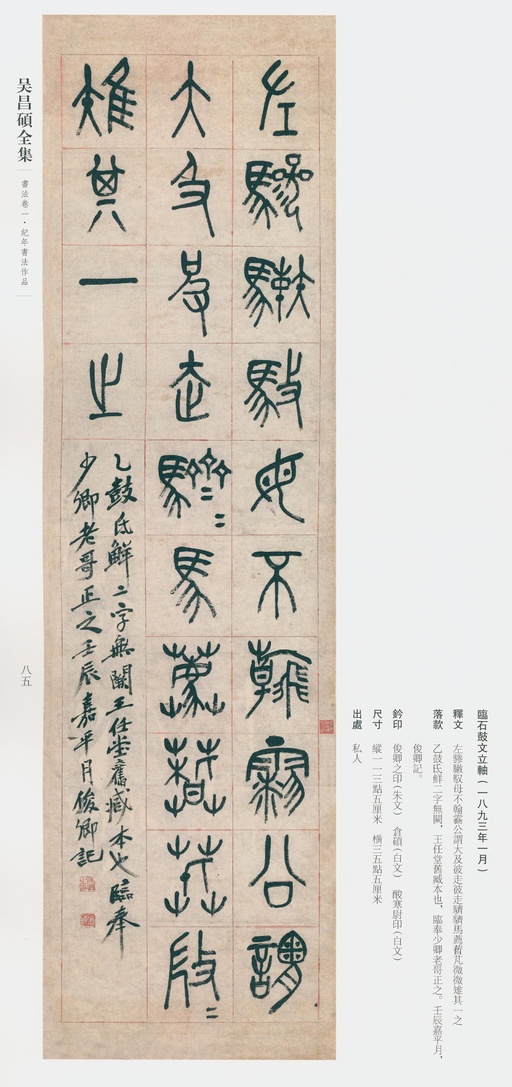 臨石鼓文立軸(一八九三年一月)
釋文 左驂馭母不翰霝公謂大及彼走彼走馬薦芃微微雉其一之
落款 乙鼓氐鮮二字無闕，王任堂舊臧本也，臨奉少卿老哥正之。壬辰嘉平月，
俊卿記。
鈐印 俊卿之印(朱文) 倉碩(白文) 酸寒尉印(白文)
尺寸 縱一一三點五厘米 橫三五點五厘米
出處 私人
左驂馭母不翰霝公謂
大及走馬薦芃
雉其一之
乙鼓氐鮮二字無闕王任堂舊臧本也臨奉
少卿老哥正之壬辰嘉平月俊卿記
吴昌碩全集
書法卷一·紀年書法作品
八五